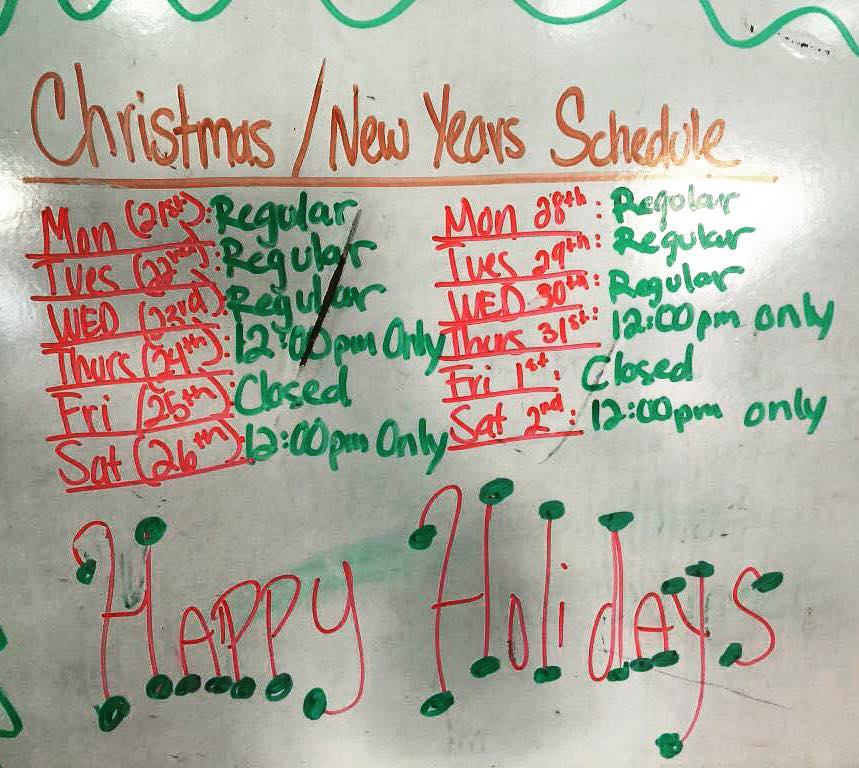 Christmas / New Years Schedule
Mon (21st): Regular
Tues (22nd): Regular
WED (23rd): Regular
Thurs (24th): 12:00pm Only
Fri (25th): Closed
Sat (26th): 12:00pm Only
Mon 28th: Regular
Tues 29th: Regular
WED 30th: Regular
Thurs 31st: 12:00pm only
Fri 1st: Closed
Sat 2nd: 12:00pm only
Happy Holidays